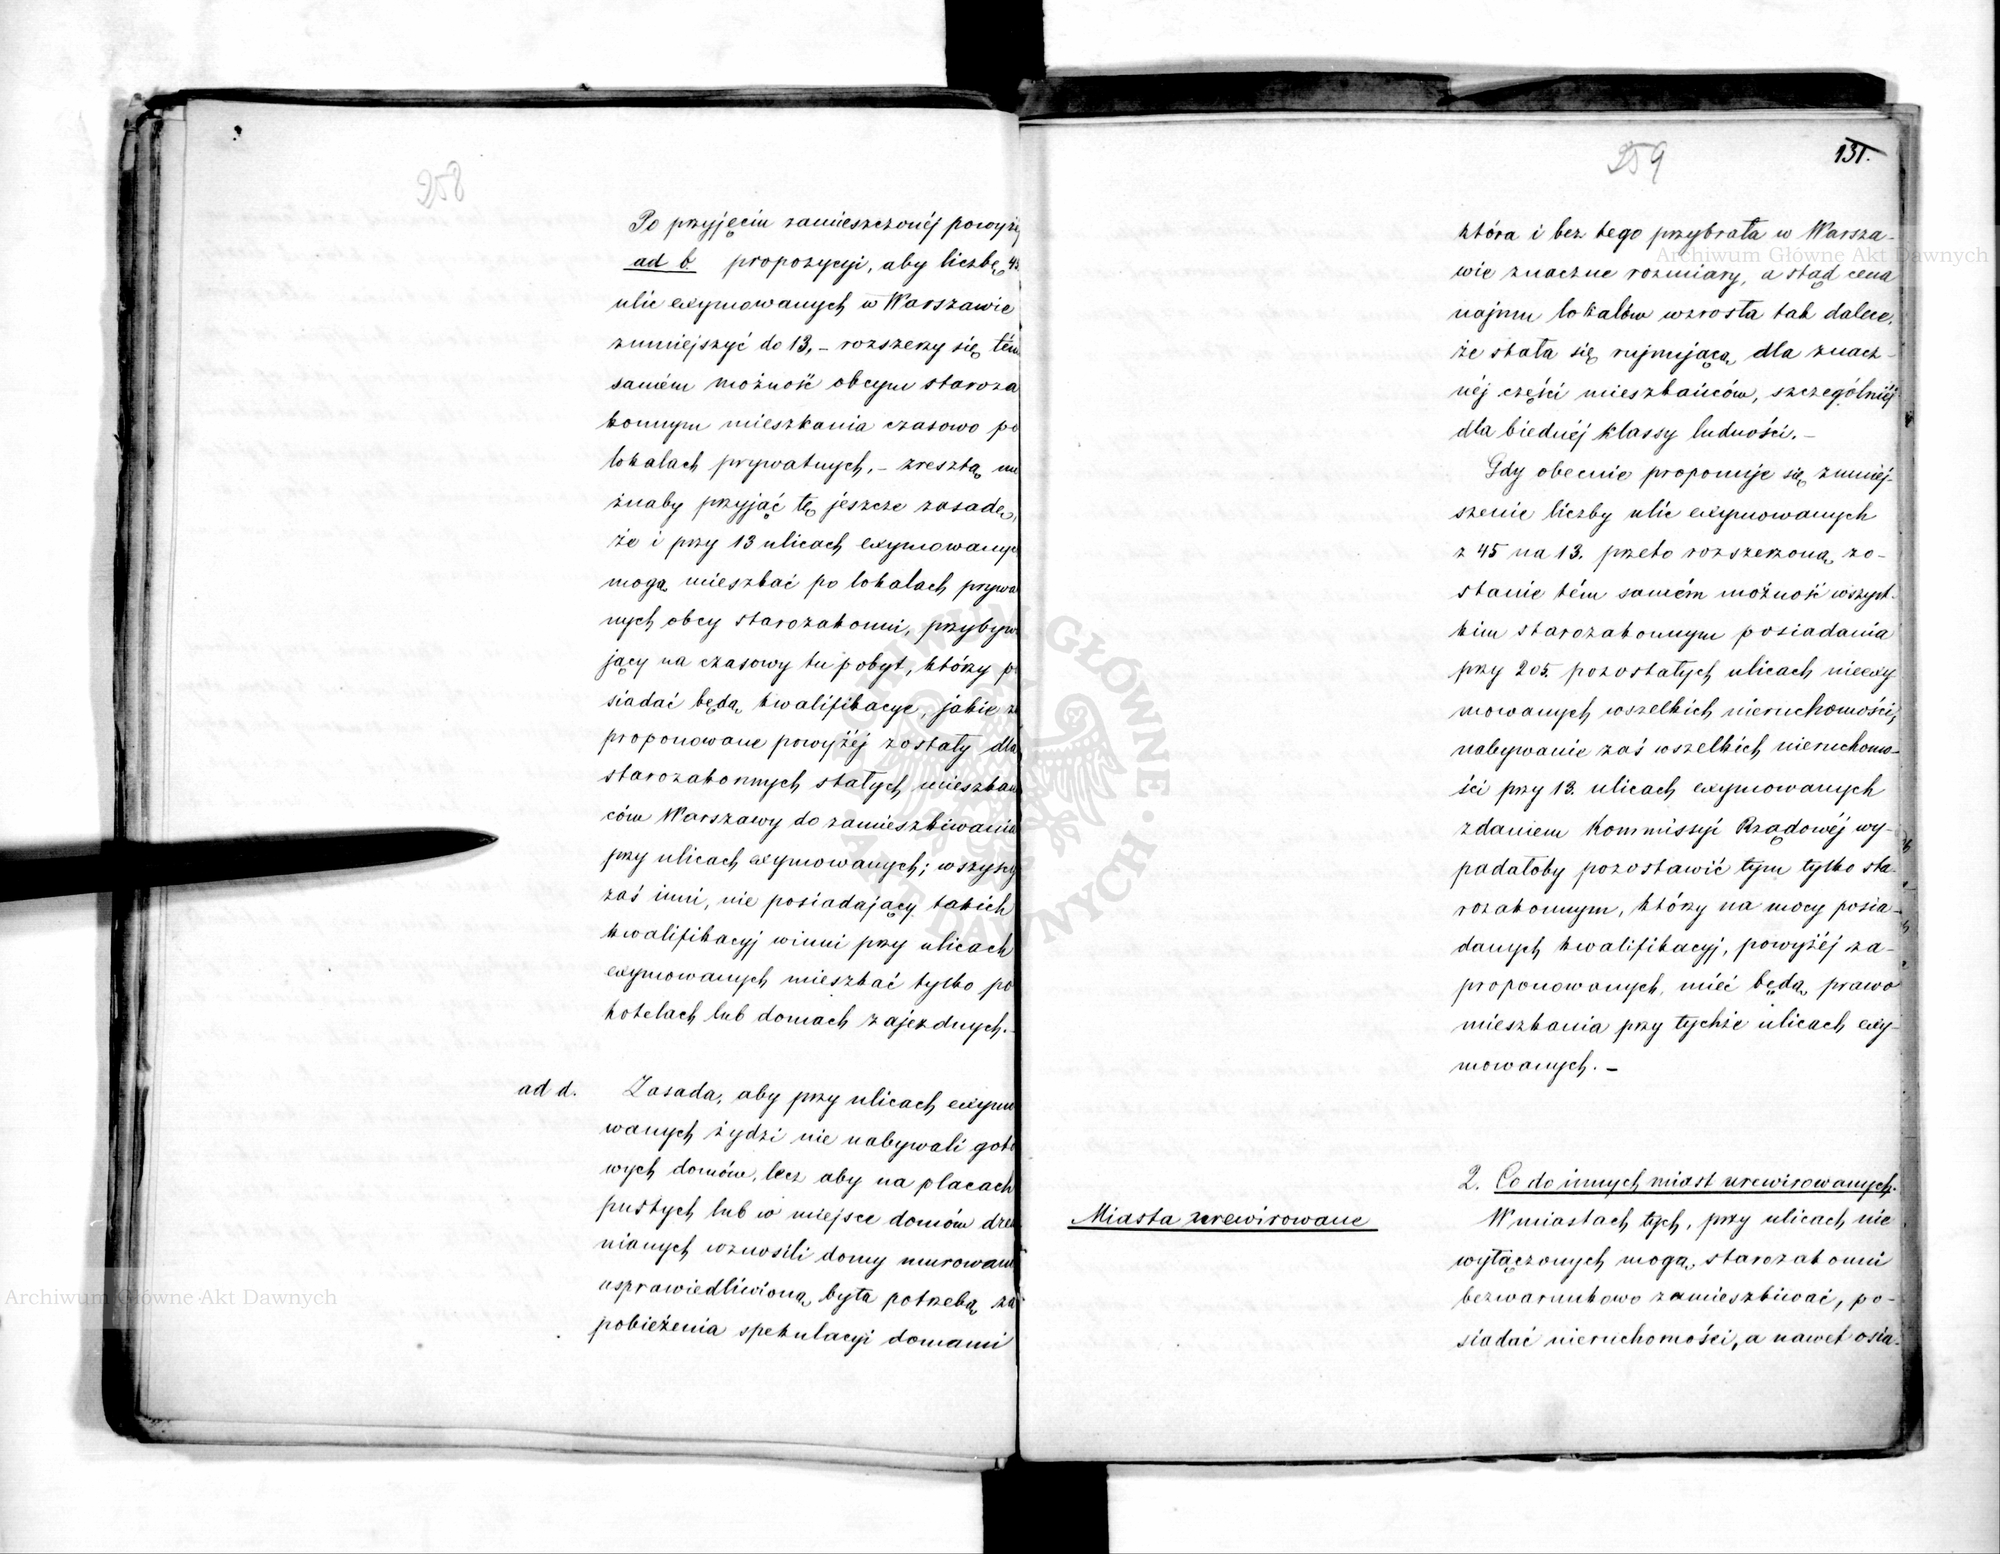 258
Po przyjęciu zamieszczonéj powyżéj
ad b. propozycyi, aby liczbę 45
ulic exymowanych w Warszawie
zmniejszyć do 13, – rozszerzy się tém
samém możność obcym staroza
konnym mieszkania czasowo po
lokalach prywatnych, – zresztą mo
żnaby przyjąć tę jeszcze zasadę,
że i przy 13 ulicach exymowanych
mogą mieszkać po lokalach prywa
nych obcy starozakonni, przybywa
jący na czasowy tu pobyt, którzy po
siadać będą kwalifikacye, jakie za
proponowane powyżéj zostały dla
starozakonnych stałych mieszkań
ców Warszawy do zamieszkiwania
przy ulicach exymowanych; wszyscy
zaś inni, nie posiadający takich
kwalifikacyj winni przy ulicach
exymowanych mieszkać tylko po
hotelach lub domach zajezdnych. –
ad d. Zasada, aby przy ulicach exymo
wanych żydzi nie nabywali goto
wych domów, lecz aby na placach
pustych lub w miejsce domów drew
nianych wznosili domy murowane
usprawiedliwioną była potrzebą za
pobieżenia spekulacyi domami
259
131.
która i bez tego przybrała w Warsza-
wie znaczne rozmiary, a stąd cena
najmu lokalów wzrosła tak dalece,
że stała się rujnującą dla znacz-
néj części mieszkańców, szczególniéj
dla biednéj klassy ludności. –
Gdy obecnie proponuje się zmniej-
szenie liczby ulic exymowanych
z 45 na 13. przeto rozszerzoną zo-
stanie tém samém możność wszyst-
kim starozakonnym posiadania
przy 205. pozostałych ulicach nieexy
mowanych wszelkich nieruchomości,
nabywanie zaś wszelkich nieruchomo-
ści przy 13. ulicach exymowanych
zdaniem Kommissyi Rządowéj wy-
padałoby pozostawić tym tylko sta-
rozakonnym, którzy na mocy posia-
danych kwalifikacyj, powyżéj za-
proponowanych, miéć będą prawo
mieszkania przy tychże ulicach exy-
mowanych. –
2. Co do innych miast zrewirowanych.
Miasta zrewirowane
W miastach tych, przy ulicach nie
wyłączonych mogą starozakonni
bezwarunkowo zamieszkiwać, po-
siadać nieruchomości, a nawet osia-
Archiwum Główne Akt Dawnych
Archiwum Główne Akt Dawnych
ARCHIWUM GŁÓWNE AKT DAWNYCH